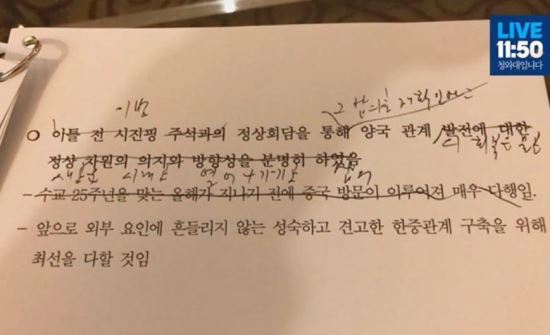 LIVE
11:50
청와대입니다
이번
○ 이틀 전 시진핑 주석과의 정상회담을 통해 양국 관계 발전에 대한
의 회복은 물론
정상 차원의 의지와 방향성을 분명히 하였음
새로운 시대
- 수교 25주년을 맞는 올해가 지나기 전에 중국 방문이 이루어져 매우 다행임.
- 앞으로 외부 요인에 흔들리지 않는 성숙하고 견고한 한중관계 구축을 위해
최선을 다할 것임